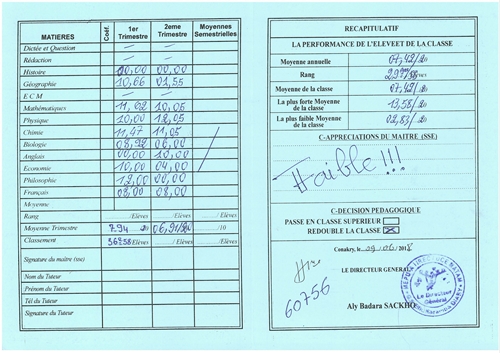 MATIERES Coéf. 1er Trimestre 2eme Trimestre Moyennes Semestrielles
Dictée et Question — —
Rédaction — —
Histoire 00,00 00,00
Géographie 10,66 01,55
E C M — —
Mathématiques 11,02 10,05
Physique 10,00 12,05
Chimie 11,47 11,05
Biologie 08,22 06,00
Anglais 00,00 10,00
Economie 10,00 04,00
Philosophie 12,00 00,00
Français 08,00 08,00
Moyenne
Rang /Elèves /Elèves /Elèves
Moyenne Trimestre 7.94 06,91/20 /10
Classement /Elèves /Elèves /Elèves
Signature du maître (sse)
Nom du Tuteur
Prénom du Tuteur
Tél du Tuteur
Signature du Tuteur
RECAPITULATIF
LA PERFORMANCE DE L'ELEVE ET DE LA CLASSE
Moyenne annuelle 07,42/20
Rang
Moyenne de la classe 07,42/20
La plus forte Moyenne de la classe 13,58/20
La plus faible Moyenne de la classe 02,83/20
C-APPRECIATIONS DU MAITRE (SSE)
Faible!!!
C-DECISION PEDAGOGIQUE
PASSE EN CLASSE SUPERIEUR
REDOUBLE LA CLASSE
Conakry, le 09/06/2018
LE DIRECTEUR GENERAL
60756
Le Directeur
Général
Aly Badara SACKHO